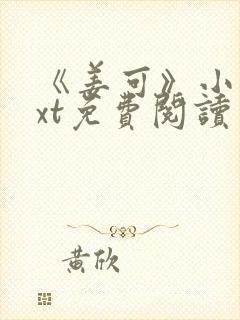 《姜可》小
xt免費閱讀
黃欣